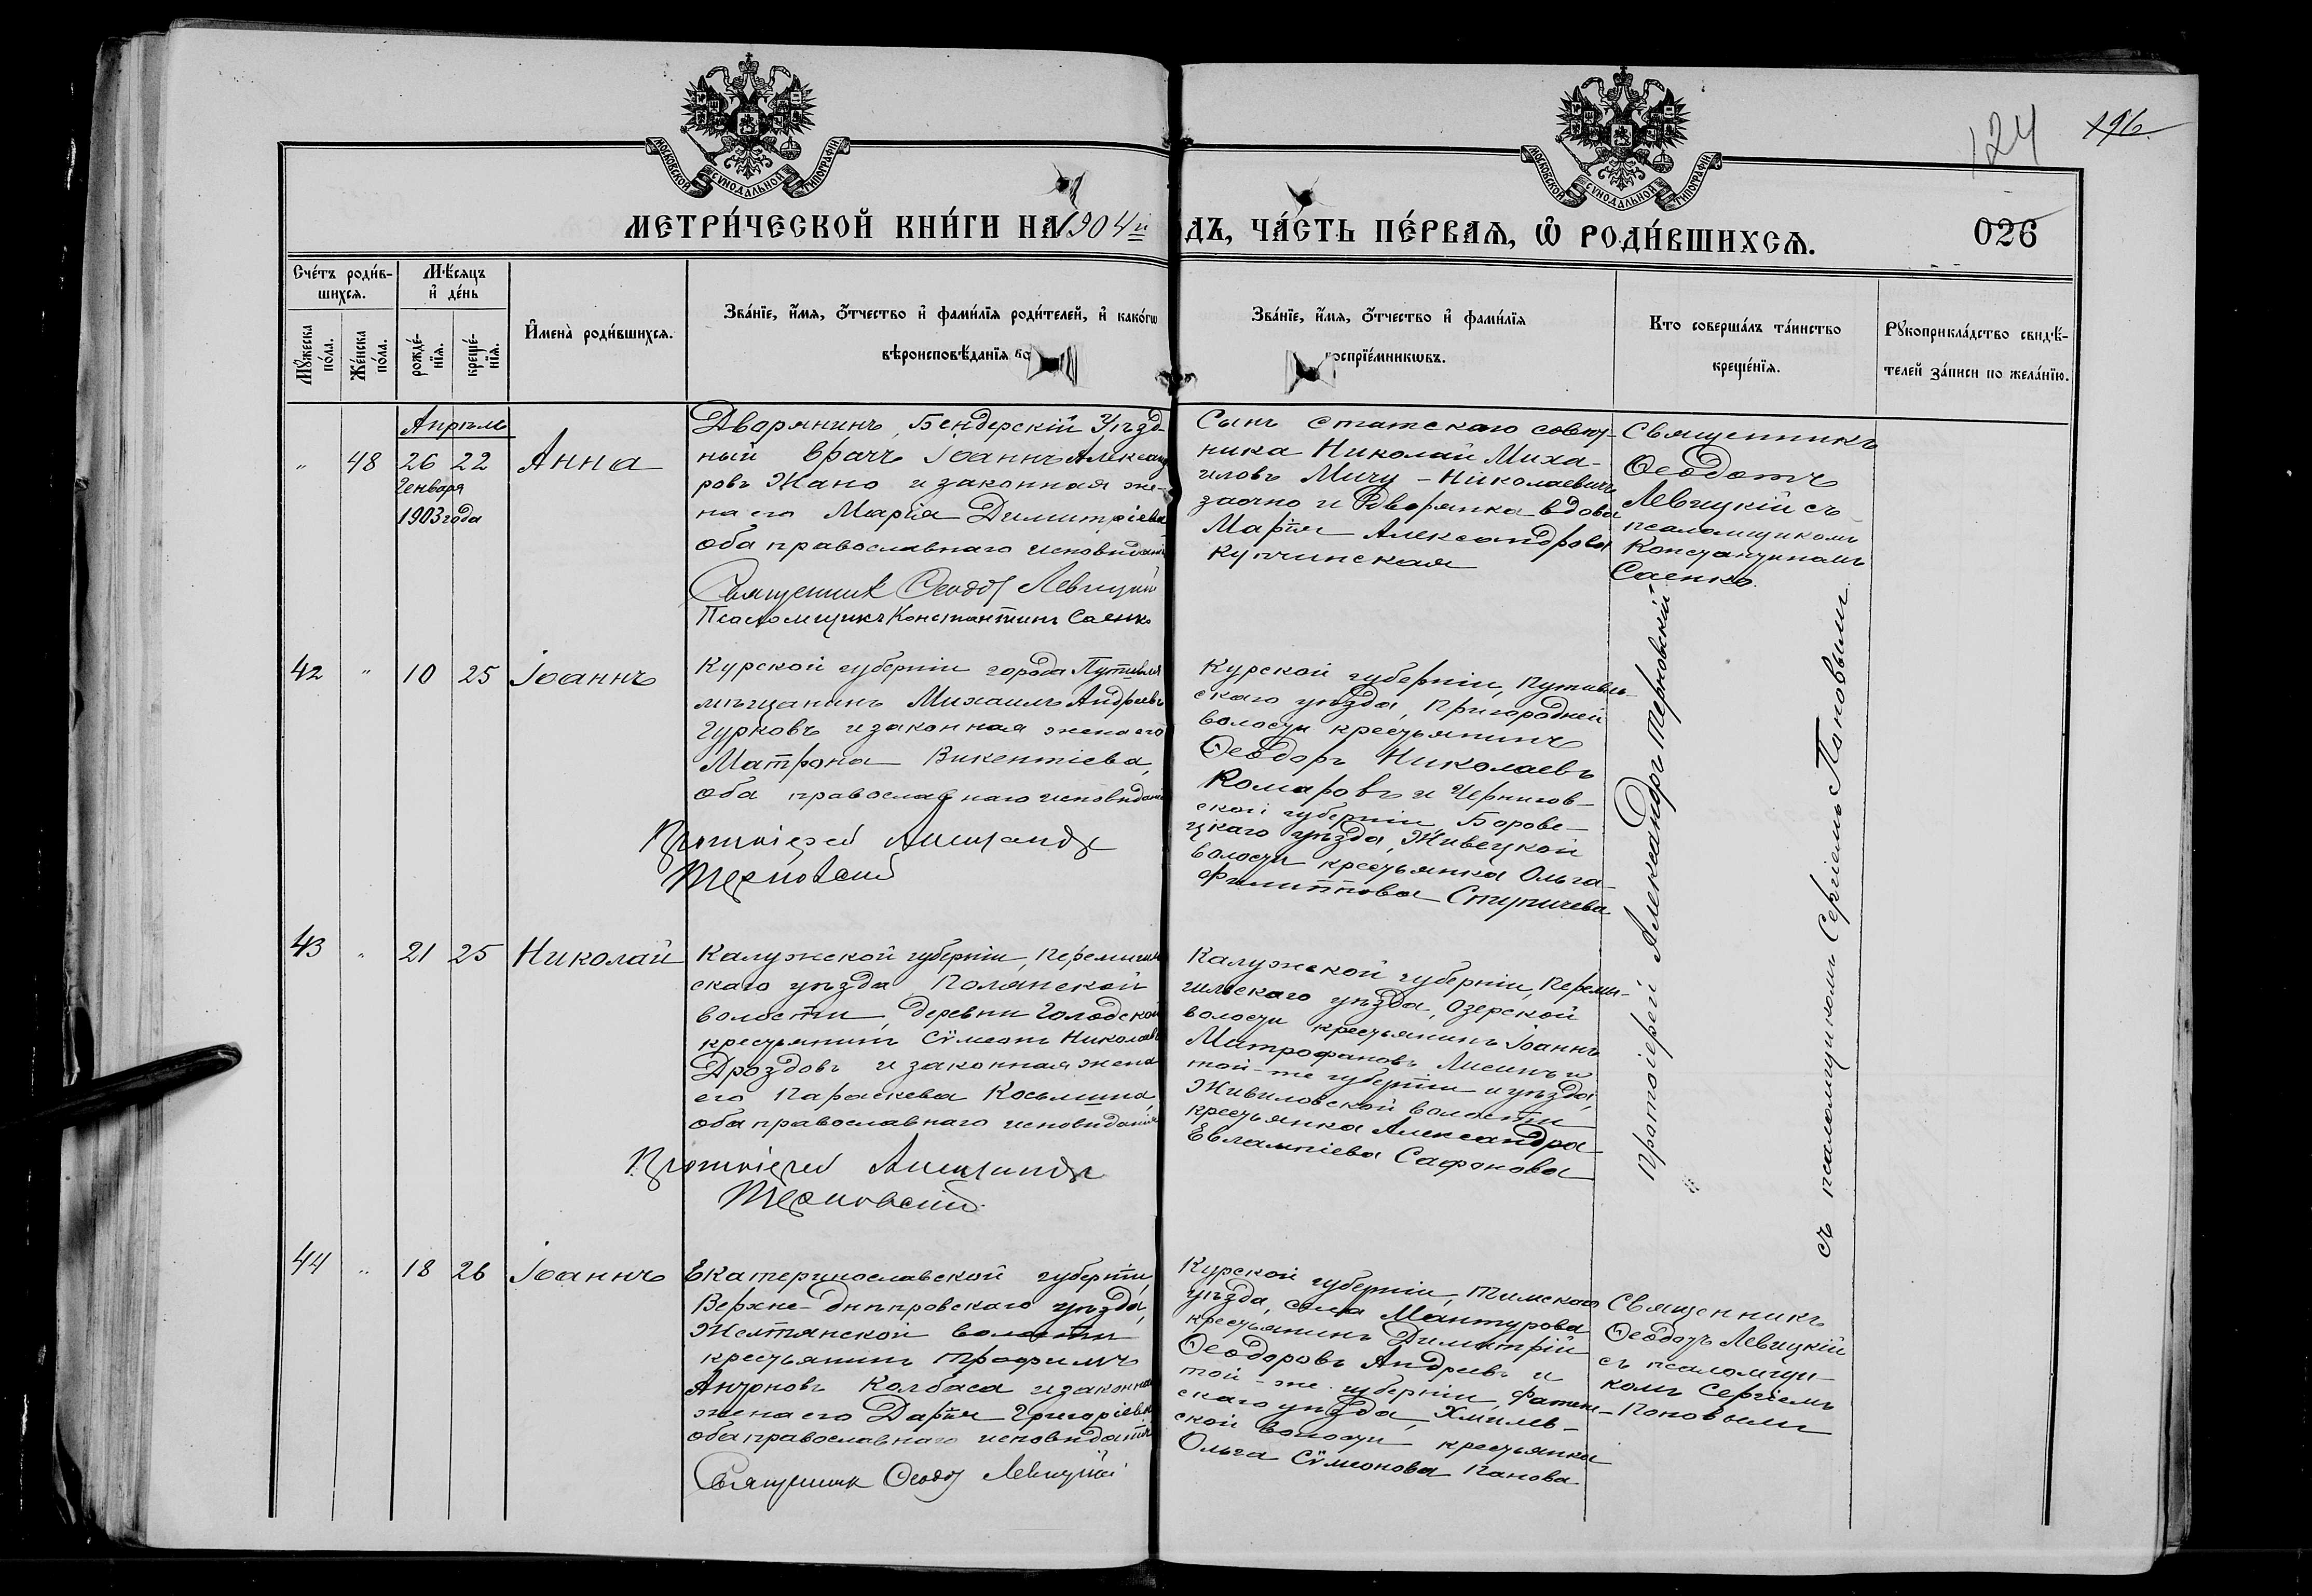 МОСКОВСКОЙ СѴНОДАЛЬНОЙ ТИПОГРАФІИ
МОСКОВСКОЙ СѴНОДАЛЬНОЙ ТИПОГРАФІИ
124
196
МЕТРИ́ЧЕСКОЙ КНИ́ГИ НА 1904й
ДЪ, ЧА́СТЬ ПЕ́РВАѦ, Ѡ҆ РОДИ́ВШИХСѦ.
026
Сче́тъ роди́в-
шихсѧ.
Мѣ́сѧцъ
и҆ де́нь
Мꙋ́жеска по́ла.
Же́нска по́ла.
рожде́-
нїѧ.
креще́-
нїѧ.
И҆мена̀ роди́вшихсѧ.
Зва́нїе, и҆́мѧ, ѻ҆́тчество и҆ фами́лїѧ роди́телей, и҆ како́гѡ
вѣроисповѣ́данїѧ
Зва́нїе, и҆́мѧ, ѻ҆́тчество и҆ фами́лїѧ
воспрїе́мникѡвъ.
Кто соверша́лъ та́инство
креще́нїѧ.
Рꙋкоприкла́дство свидѣ́-
телей за́писи по жела́нїю.
Апрѣль
" 48 26 22 Анна
Генваря
1903 года
Дворянинъ, Бендерскій Уѣзд-
ный врачъ Іоаннъ Александ
ровъ Жано и законная же-
на его Марія Димитріева
оба православнаго исповѣданія
Священник Ѳеодот Левицкій
Псаломщикъ Константинъ Саенко
Сынъ статскаго совѣт-
ника Николай Миха-
иловъ Мичу-Николаевичъ
заочно и Дворянка вдова
Марія Александрова
Купчинская
Священникъ
Ѳеодотъ
Левицкій съ
псаломщикомъ
Константиномъ
Саенко.
42 " 10 25 Іоаннъ
Курской губерніи города Путивля
мѣщанинъ Михаилъ Андреевъ
Гурковъ и законная жена его
Матрона Викентіева,
оба православнаго исповѣданія
Протоіерей Александръ
Терновскій
Курской губерніи, Путивль-
скаго уѣзда, Пригородней
волости крестьянинъ
Ѳеодоръ Николаевъ
Комаровъ и Чернигов-
ской губерніи Борове-
цкаго уѣзда, Живецкой
волости крестьянка Ольга
Филиппова Ступичева
Протоіерей Александръ Терновскій
съ псаломщикомъ Сергіемъ Поповымъ
43 " 21 25 Николай
Калужской губерніи, Перемышль
скаго уѣзда Полянской
волости, деревни Голодской
крестьянинъ Сѵмеонъ Николаевъ
Дроздовъ и законная жена
его Параскева Косьмина,
оба православнаго исповѣданія
Протоіерей Александръ
Терновскій.
Калужской губерніи, Перемы-
шльскаго уѣзда, Озерской
волости крестьянинъ Іоаннъ
Митрофановъ Лисинъ и
той-же губерніи и уѣзда,
Живиловской волости
крестьянка Александра
Евлампіева Сафонова
44 " 18 26 Іоаннъ
Екатеринославской губерніи,
Верхне-Днѣпровскаго уѣзда,
Желтянской волости
крестьянинъ Трофимъ
Антоновъ Колбаса и законная
жена его Дарія Григоріева
оба православнаго исповѣданія
Священник Ѳеодот Левицкій
Курской губерніи, Тимскаго
уѣзда, села Мантурова
крестьянинъ Димитрій
Ѳеодоровъ Андреевъ и
той-же губерніи, Фатеж-
скаго уѣзда, Хмилев-
ской волости крестьянка
Ольга Сѵмеонова Панова
Священникъ
Ѳеодотъ Левицкій
съ псаломщи-
комъ Сергіемъ
Поповымъ